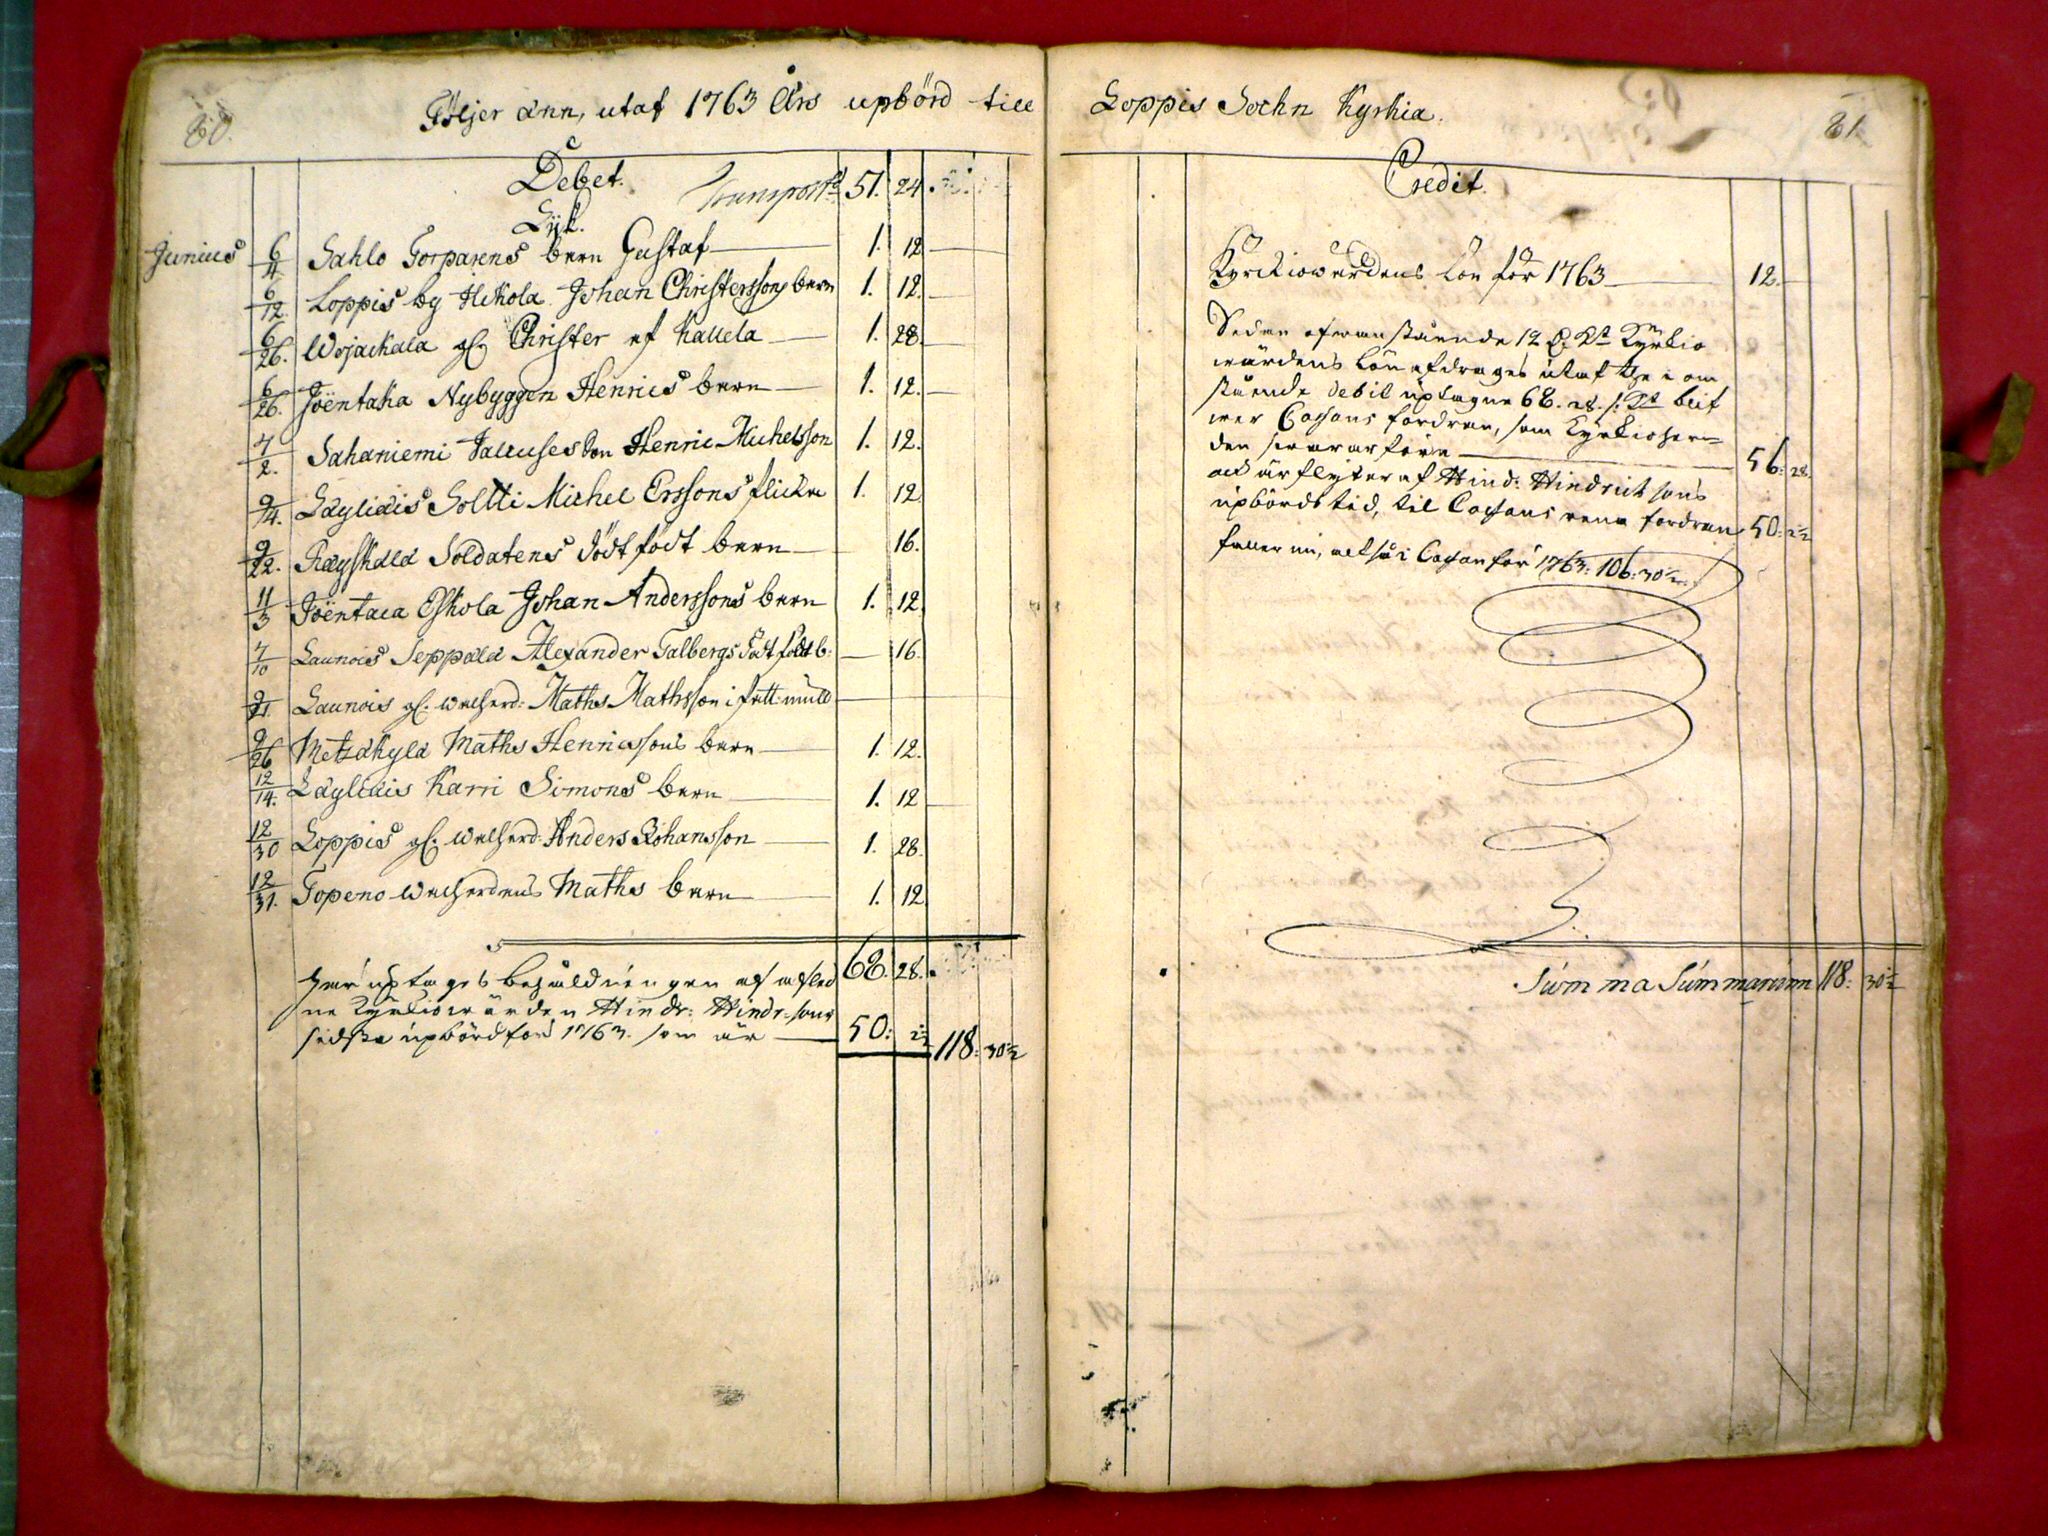 80.
Följer änn, utaf 1763 Års upbörd till Loppis Sochn Kyrkia.
81.
Debet.
Transport 51. 24
Lyk.
Junius 6/4 Sahlo Torparens bern Gustaf 1. 12
6/12. Loppis by Hikola Johan Christerssons bern 1. 12.
6/26. Wojackala gl. Christer af Kallela 1. 28.
6/26. Joëntaka Nybyggen Henrics bern 1. 12.
7/2. Sahaniemi Henric Michelsson 1. 12.
9/14. Läyliäis Soltti Michel Erssons flicka 1. 12
9/22. Räyskälä Soldatens dödt födt bern 16.
11/3 Joëntaca Eskola Johan Anderssons bern 1. 12.
7/10 Launois Seppälä Alexander Talbergs dödt födt b. 16.
9/21. Launois gl. welferd: Maths Mathsson i fatt: muld
9/26 Metzäkylä Maths Henricssons bern 1. 12.
12/14. Läyliäis Karri Simons bern 1. 12
12/30 Loppis gl. welferd: Anders Johansson 1. 28.
12/31. Topeno welferdens Maths bern 1. 12
68. 28.
här uptages behåldningen af afled
ne Kyrkiowärden Hindr: Hindr:sons
sidsta upbörd för 1763. som är 50: 2½ 118: 30½
Credit.
Kyrckiowärdens Lön för 1763 12.
Sedan ofwanstående 12 Kyrkio
wärdens Lön afdrages utaf the i om
stående debit uptagne 68. 28. blif
wer Cassans fordran, som Kyrkioher=
den swarar före 56: 28.
och är flyter af Hind: Hindrichsons
upbörds tid, til Cassans rena fordran 50: 2½
faller nu, altså i Cassan för 1763: 106: 30½
Summa Summarum 118: 30½